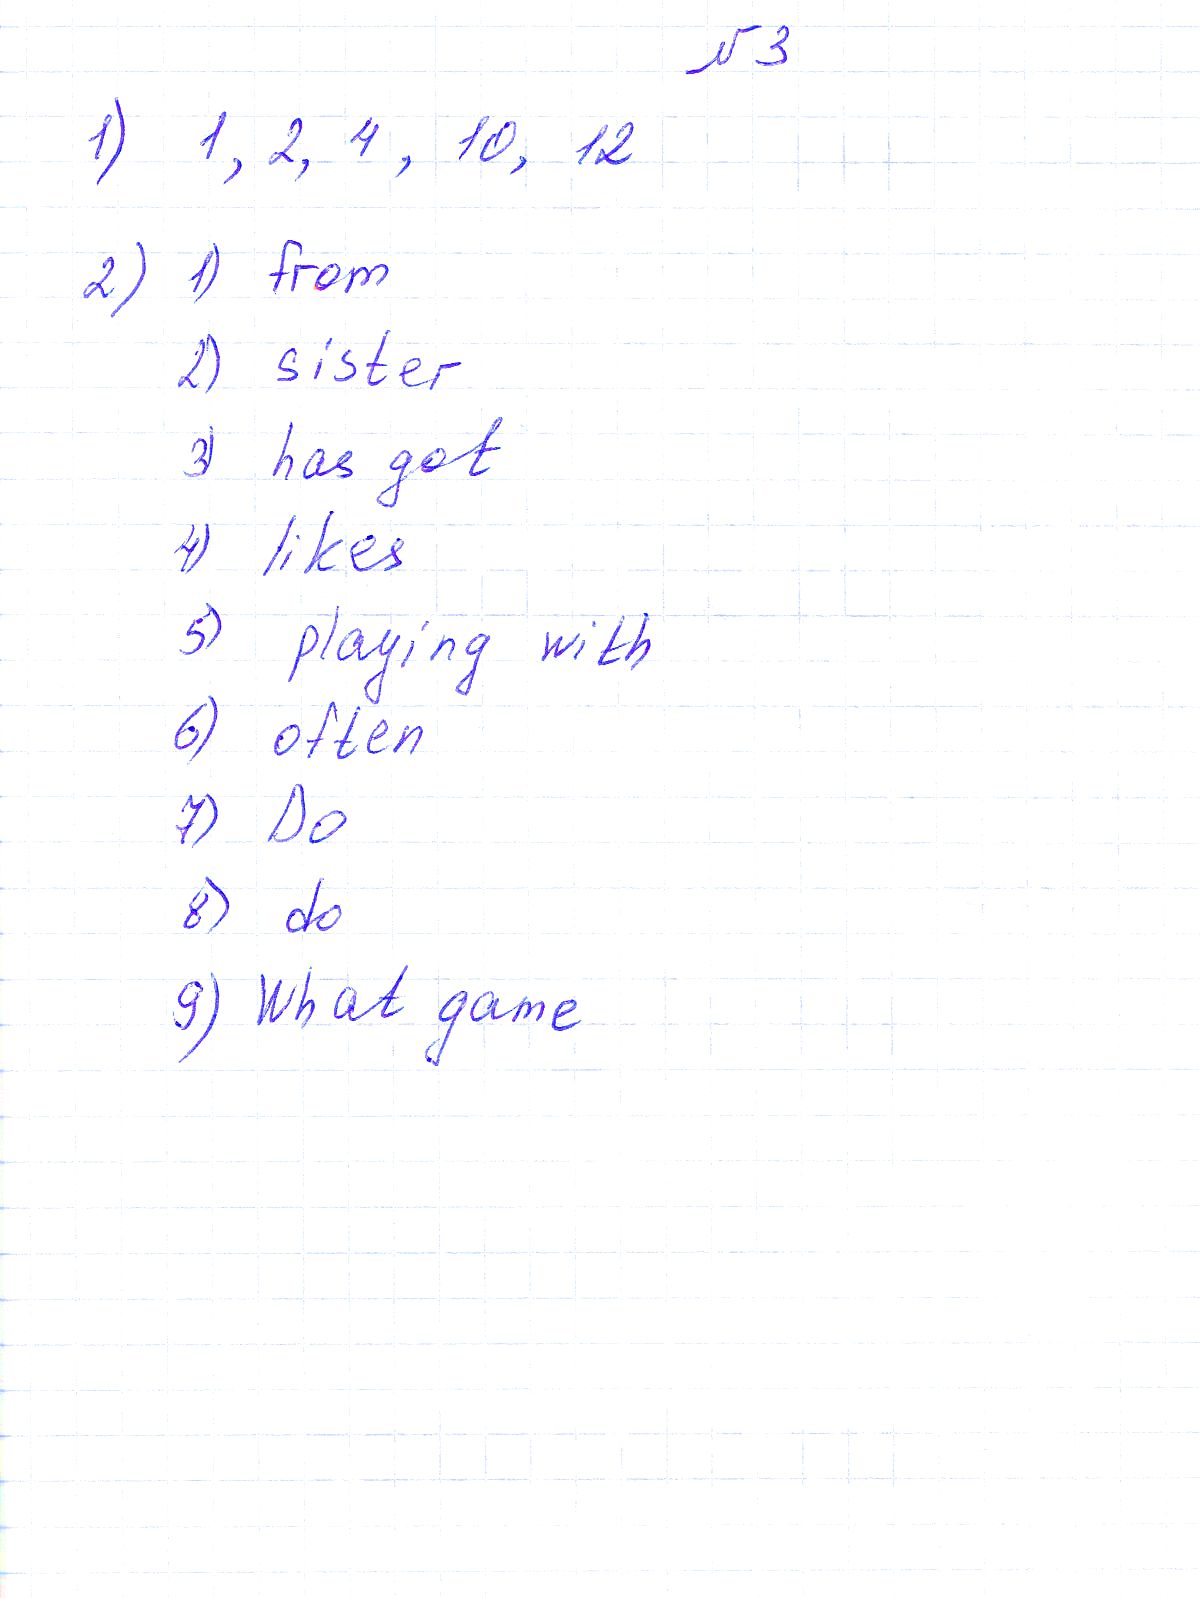 № 3
1) 1, 2, 4, 10, 12
2) 1) from
2) sister
3) has got
4) likes
5) playing with
6) often
7) Do
8) do
9) What game